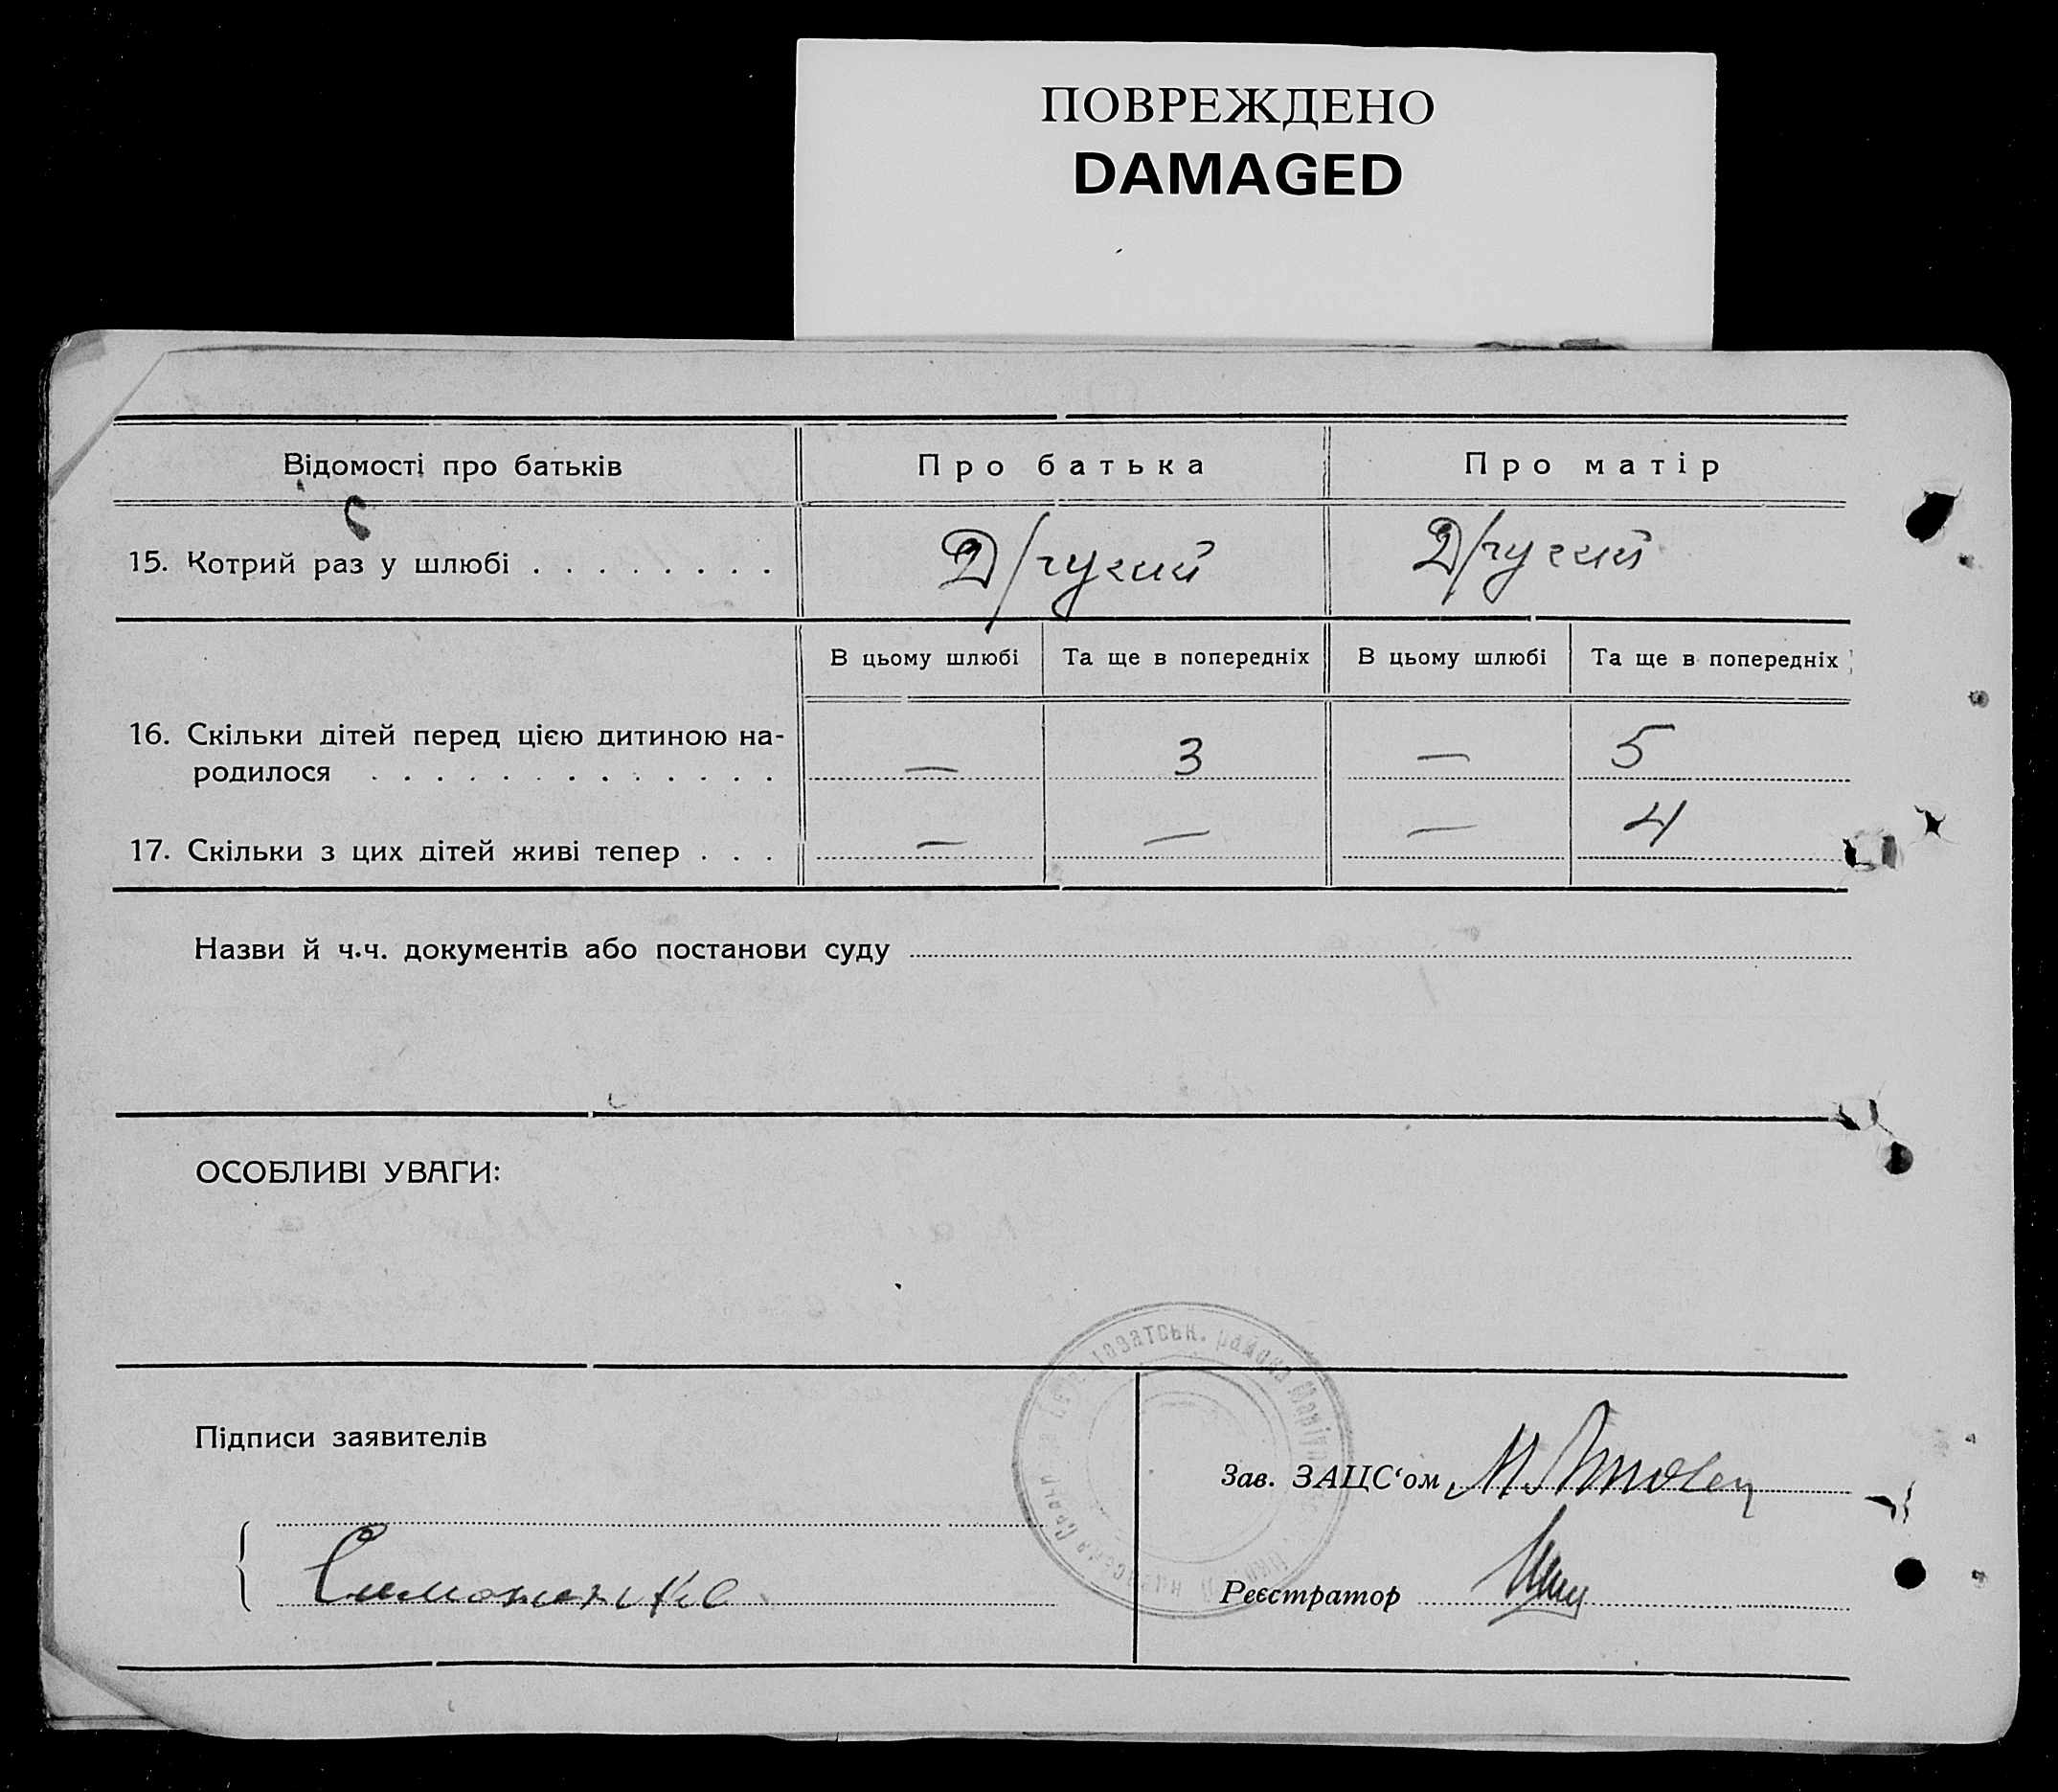 ПОВРЕЖДЕНО
DAMAGED
Відомості про батьків
Про батька
Про матір
15. Котрий раз у шлюбі . . . . . . . .
Другий
Другий
В цьому шлюбі
Та ще в попередніх
В цьому шлюбі
Та ще в попередніх
16. Скільки дітей перед цією дитиною на-
родилося . . . . . . . . . . . . .
—
3
—
5
17. Скільки з цих дітей живі тепер . . .
—
—
—
4
Назви й ч.ч. документів або постанови суду
ОСОБЛИВІ УВАГИ:
района
Підписи заявителів
Зав. ЗАЦС‘ом
Реєстратор